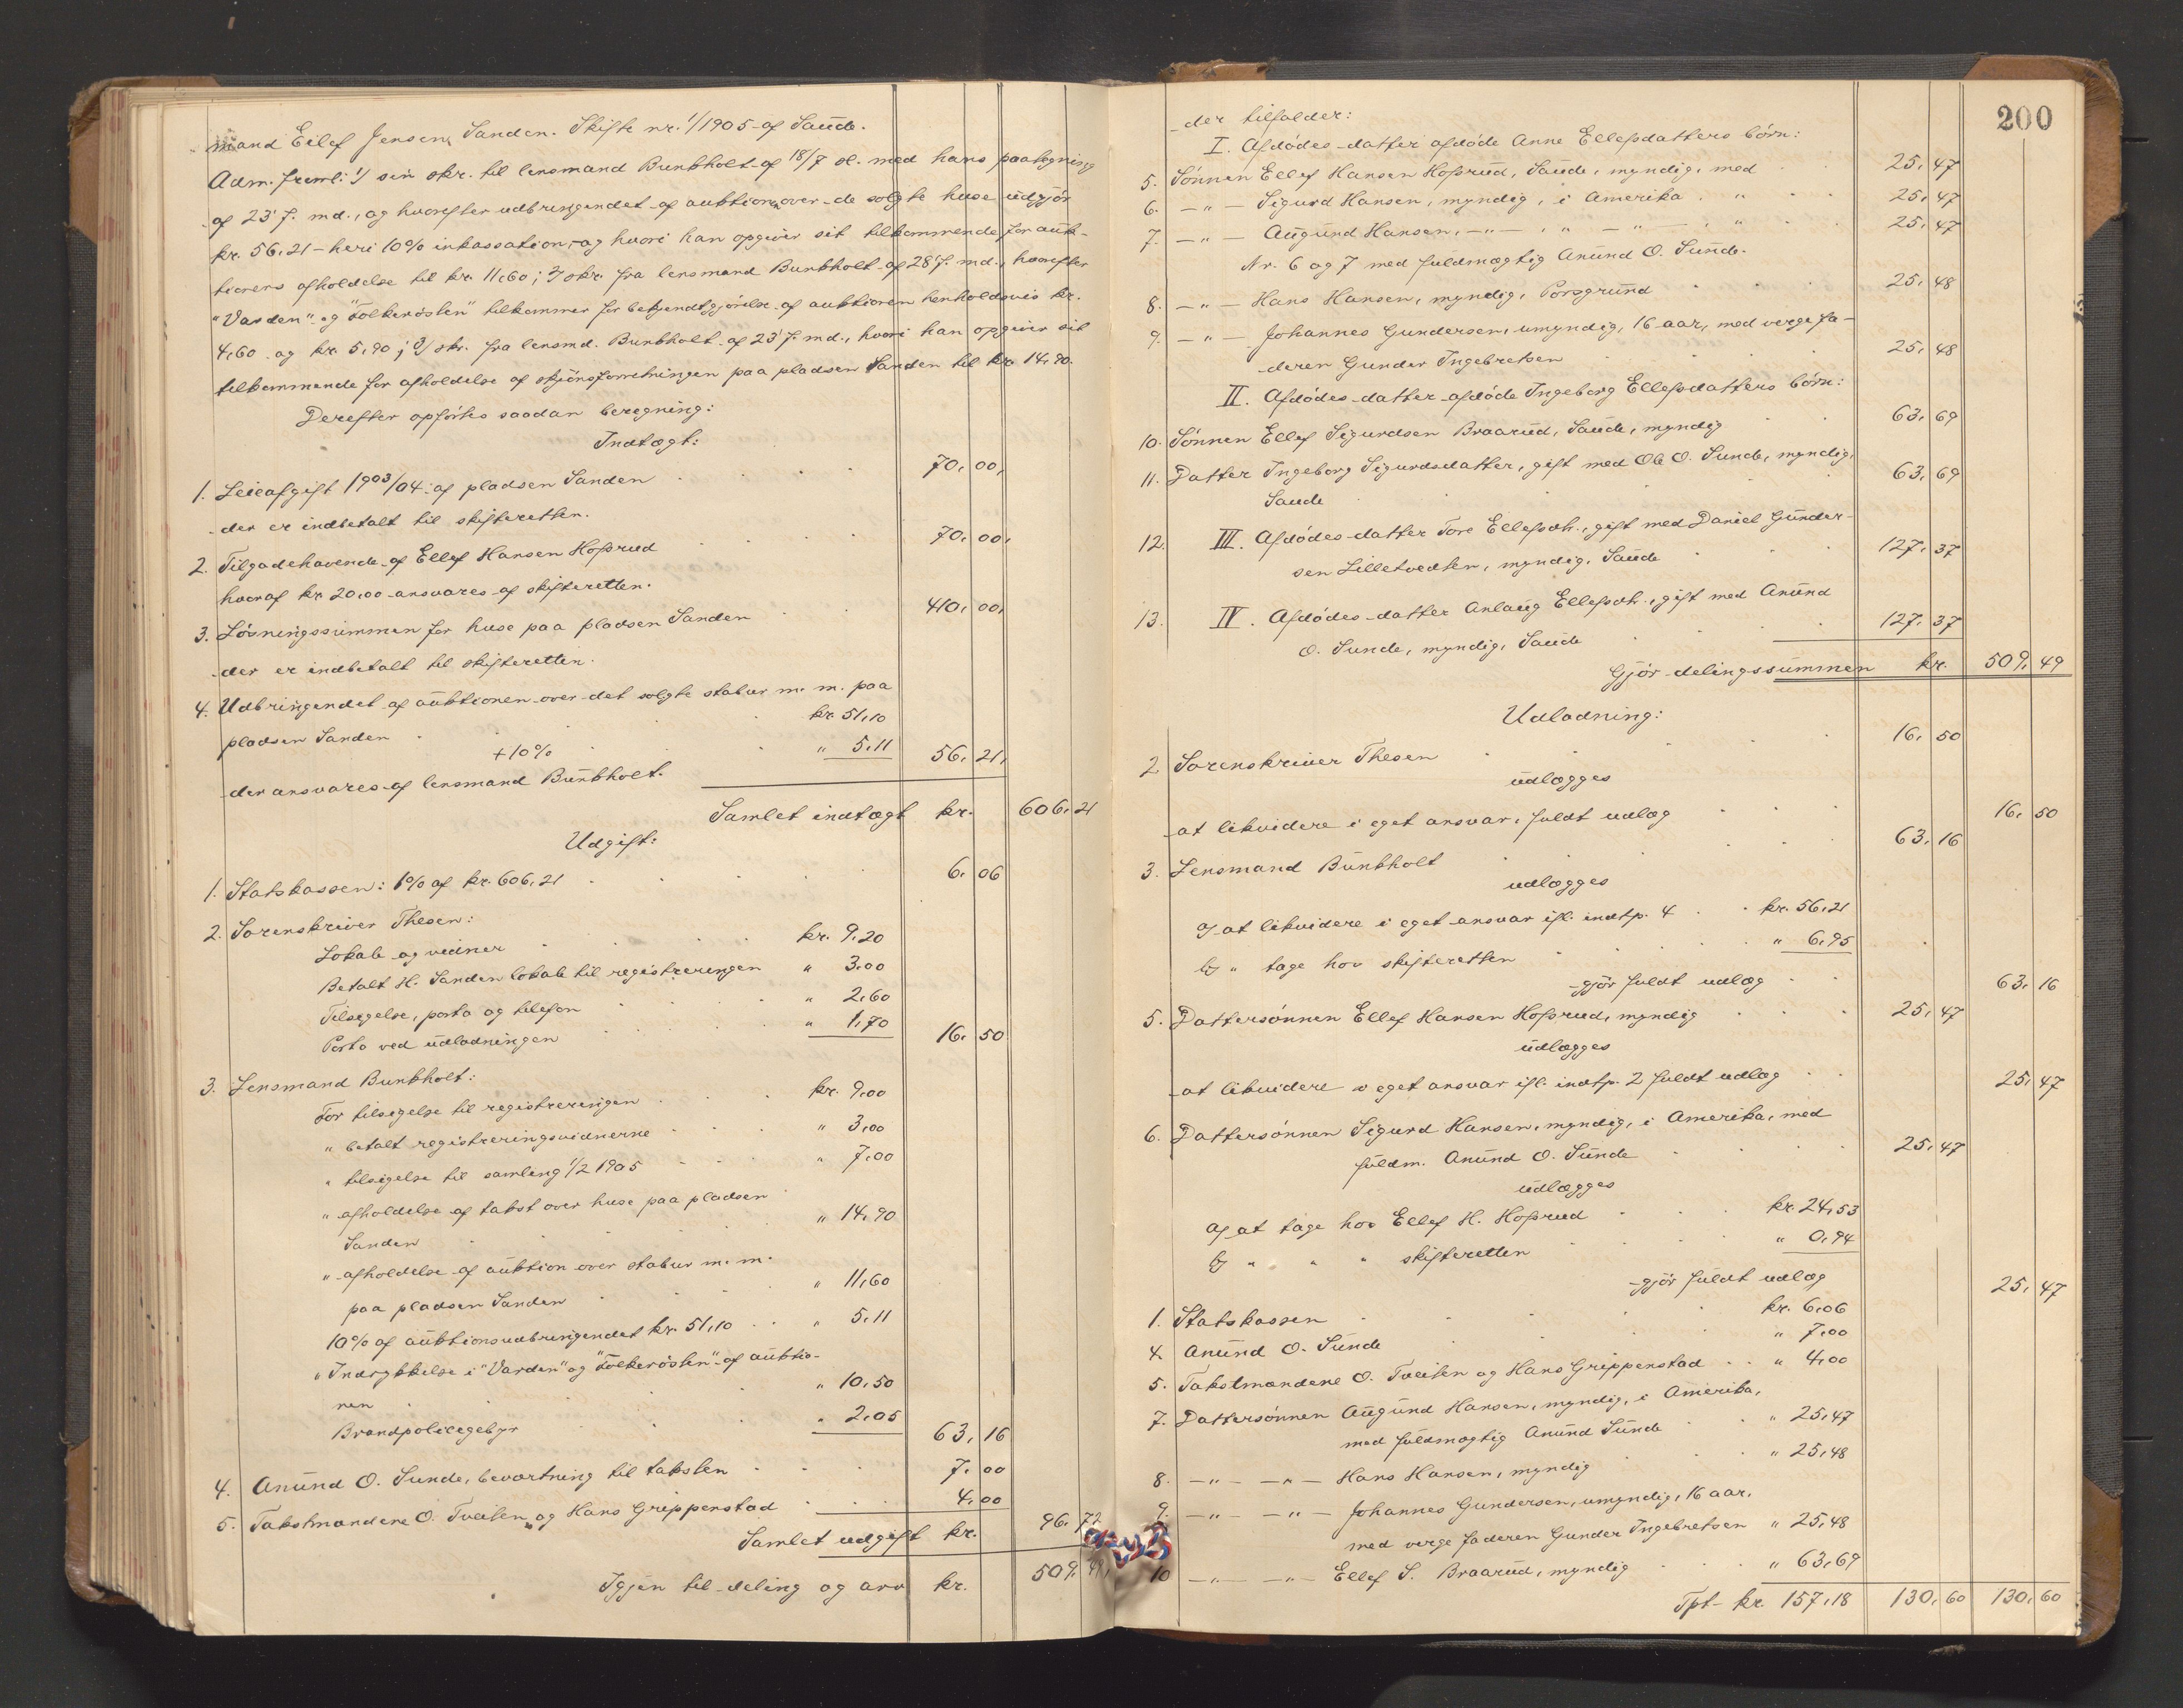 mand Eilef Jensen Sanden. Skifte nr. 1/1905 af Saude.
Adm. freml: 1) sin skr. til lensmand Bunkholt af 18/7 sl. med hans paategning
af 23' f. md., og hvorefter udbringendet af auktion over de solgte huse udgjør
kr. 56,21 – heri 10% inkassation, og hvori han opgiver sit tilkommende for auk-
tionens afholdelse til kr. 11,60; 2) skr. fra lensmand Bunkholt af 28' f. md., hvorefter
"Varden" og "Folkerøsten" tilkommer for bekjendtgjørelse af auktionen henholdsvis kr.
4,60 og kr. 5,90; 3) skr. fra lensmd. Bunkholt af 23' f. md., hvori han opgiver sit
tilkommende for afholdelse af skjønsforretningen paa pladsen Sanden til kr. 14,90.
Derefter opførtes saadan beregning:
Indtægt:
1. Leieafgift 1903/04 af pladsen Sanden 70,00,
der er indbetalt til skifteretten.
2. Tilgodehavende af Ellef Hansen Hofsrud 70,00,
hvoraf kr. 20,00 ansvares af skifteretten.
3. Løsningssummen for huse paa pladsen Sanden 410,00,
der er indbetalt til skifteretten.
4. Udbringendet af auktionen over det solgte stabur m. m. paa
pladsen Sanden kr. 51,10
+ 10% " 5,11 56,21,
der ansvares af lensmand Bunkholt.
Samlet indtægt kr. 606,21
Udgift:
1. Statskassen: 1% af kr. 606,21 6,06
2. Sorenskriver Thesen:
Lokale og vidner kr. 9,20
Betalt H. Sanden lokale til registreringen " 3,00
Tilsigelse, porto og telefon " 2,60
Porto ved udlodningen " 1,70 16,50
3. Lensmand Bunkholt:
For tilsigelse til registreringen kr. 9,00
" betalt registreringsvidnerne " 3,00
" tilsigelse til samling 1/2 1905 " 7,00
" afholdelse af takst over huse paa pladsen
Sanden " 14,90
" afholdelse af auktion over stabur m. m.
paa pladsen Sanden " 11,60
10% af auktionsudbringendet kr. 51,10 " 5,11
" Indrykkelse i "Varden" og "Folkerøsten" af auktio-
nen " 10,50
Brandpolicegebyr " 2,05 63,16
4. Anund O. Sunde, bevertning til taksten 7,00
5. Takstmændene O. Tveiten og Hans Grippenstad 4,00
Samlet udgift kr. 96,72
Igjen til deling og arv kr. 509,49,
200
der tilfalder:
I. Afdødes datter afdøde Anne Ellefsdatters børn:
5. Sønnen Ellef Hansen Hofsrud, Saude, myndig, med 25,47
6. –"– Sigurd Hansen, myndig, i Amerika " 25,47
7. –"– Augund Hansen, –"– , " –"– " 25,47
Nr. 6 og 7 med fuldmægtig Anund O. Sunde.
8. –"– Hans Hansen, myndig, Porsgrund 25,48
9. –"– Johannes Gundersen, umyndig, 16 aar, med verge fa-
deren Gunder Ingebretsen 25,48
II. Afdødes datter afdøde Ingeborg Ellefsdatters børn:
10. Sønnen Ellef Sigurdsen Braarud, Saude, myndig 63,69
11. Datter Ingeborg Sigurdsdatter, gift med Ole O. Sunde, myndig,
Saude 63,69
12. III. Afdødes datter Tore Ellefsdtr., gift med Daniel Gunder-
sen Lilletvedten, myndig, Saude 127,37
13. IV. Afdødes datter Anlaug Ellefsdtr., gift med Anund
O. Sunde, myndig, Saude 127,37
Gjør delingssummen kr. 509,49
Udlodning:
2. Sorenskriver Thesen 16,50
udlægges
at likvidere i eget ansvar, fuldt udlæg 16,50
3. Lensmand Bunkholt 63,16
udlægges
a) at likvidere i eget ansvar ifl. indtp. 4 kr. 56,21
b) " tage hos skifteretten " 6,95
gjør fuldt udlæg 63,16
5. Dattersønnen Ellef Hansen Hofsrud, myndig 25,47
udlægges
at likvidere i eget ansvar ifl. indtp. 2 fuldt udlæg 25,47
6. Dattersønnen Sigurd Hansen, myndig, i Amerika, med
fuldm. Anund O. Sunde 25,47
udlægges
a) at tage hos Ellef H. Hofsrud kr. 24,53
b) " " " skifteretten " 0,94
gjør fuldt udlæg 25,47
1. Statskassen kr. 6,06
4. Anund O. Sunde " 7,00
5. Takstmændene O. Tveiten og Hans Grippenstad " 4,00
7. Dattersønnen Augund Hansen, myndig, i Amerika,
med fuldmægtig Anund Sunde " 25,47
8. –"– –"– Hans Hansen, myndig " 25,48
9. –"– –"– Johannes Gundersen, umyndig, 16 aar,
med verge faderen Gunder Ingebretsen " 25,48
10 –"– –"– Ellef S. Braarud, myndig " 63,69
Tpt. kr. 157,18 130,60 130,60